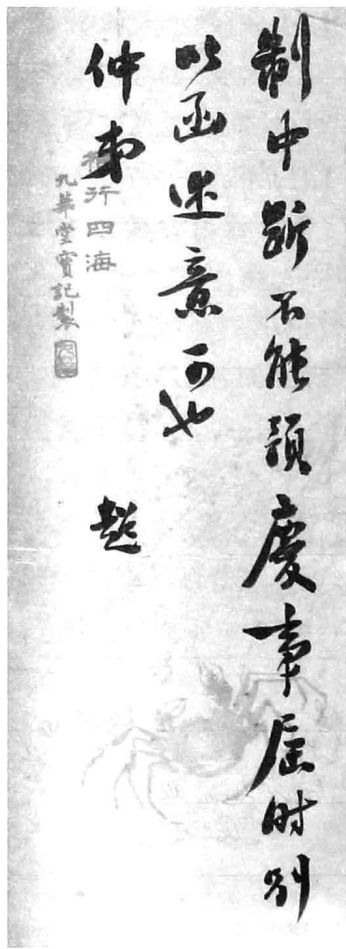 制中斷不能預慶事屆時別
以函述意可也
仲弟 超
橫行四海
九華堂寶記製